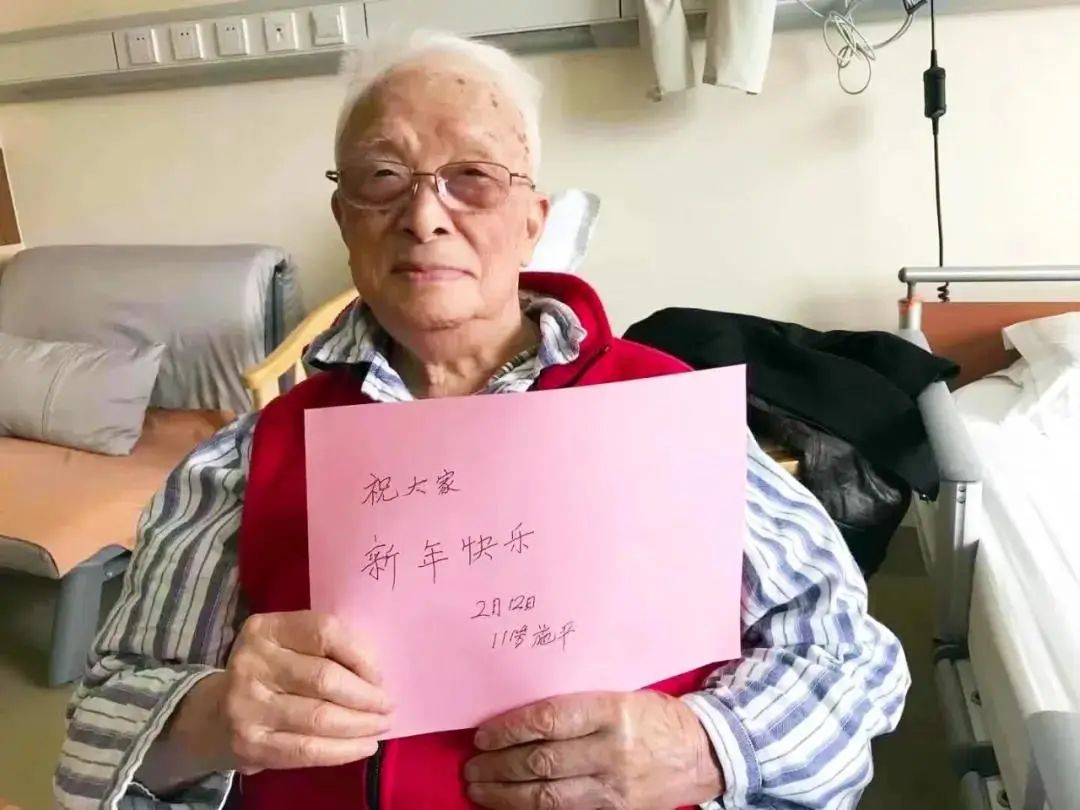 祝大家
新年快乐
2月12日
施平